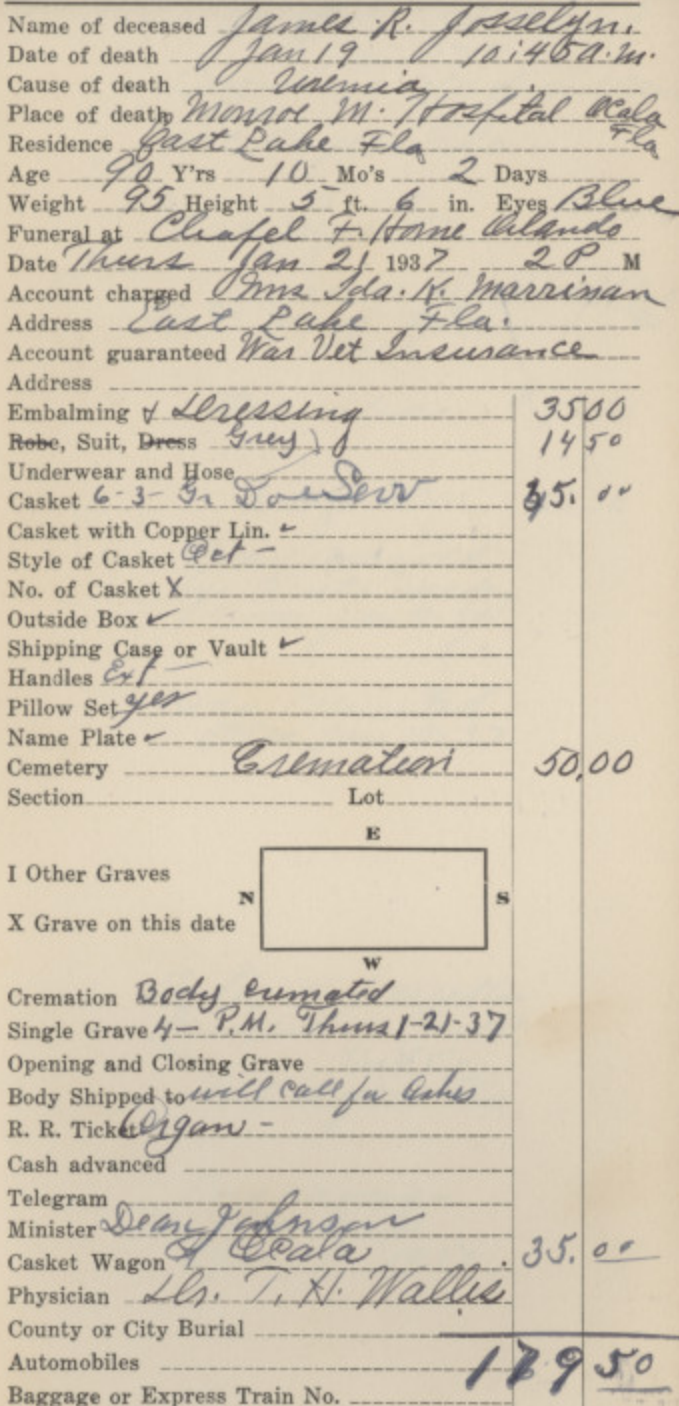 Name of deceased James R. Josselyn.
Date of death Jan 19 10:45 a.m.
Cause of death Uremia
Place of death Monroe M. Hospital Ocala Fla
Residence East Lake Fla
Age 90 Y'rs 10 Mo's 2 Days
Weight 95 Height 5 ft. 6 in. Eyes Blue
Funeral at Chapel F. Home Orlando
Date Thurs Jan 21 1937 2 P M
Account charged Mrs Ida. K. Marrinan
Address East Lake Fla.
Account guaranteed War Vet Insurance
Address
Embalming & Dressing 35 00
Robe, Suit, Dress Grey 14 50
Underwear and Hose
Casket 6-3- Gr. Doe 45. 00
Casket with Copper Lin. ✓
Style of Casket Oct -
No. of Casket X
Outside Box ✓
Shipping Case or Vault ✓
Handles Ext -
Pillow Set yes
Name Plate ✓
Cemetery Cremation 50,00
Section Lot
E
I Other Graves
N S
X Grave on this date
W
Cremation Body cremated
Single Grave 4- P.M. Thurs 1-21-37
Opening and Closing Grave
Body Shipped to will call for Ashes
R. R. Ticket Organ -
Cash advanced
Telegram
Minister Dean Johnson
Casket Wagon Ocala 35. 00
Physician Dr. T. H. Wallis
County or City Burial
Automobiles 179 50
Baggage or Express Train No.